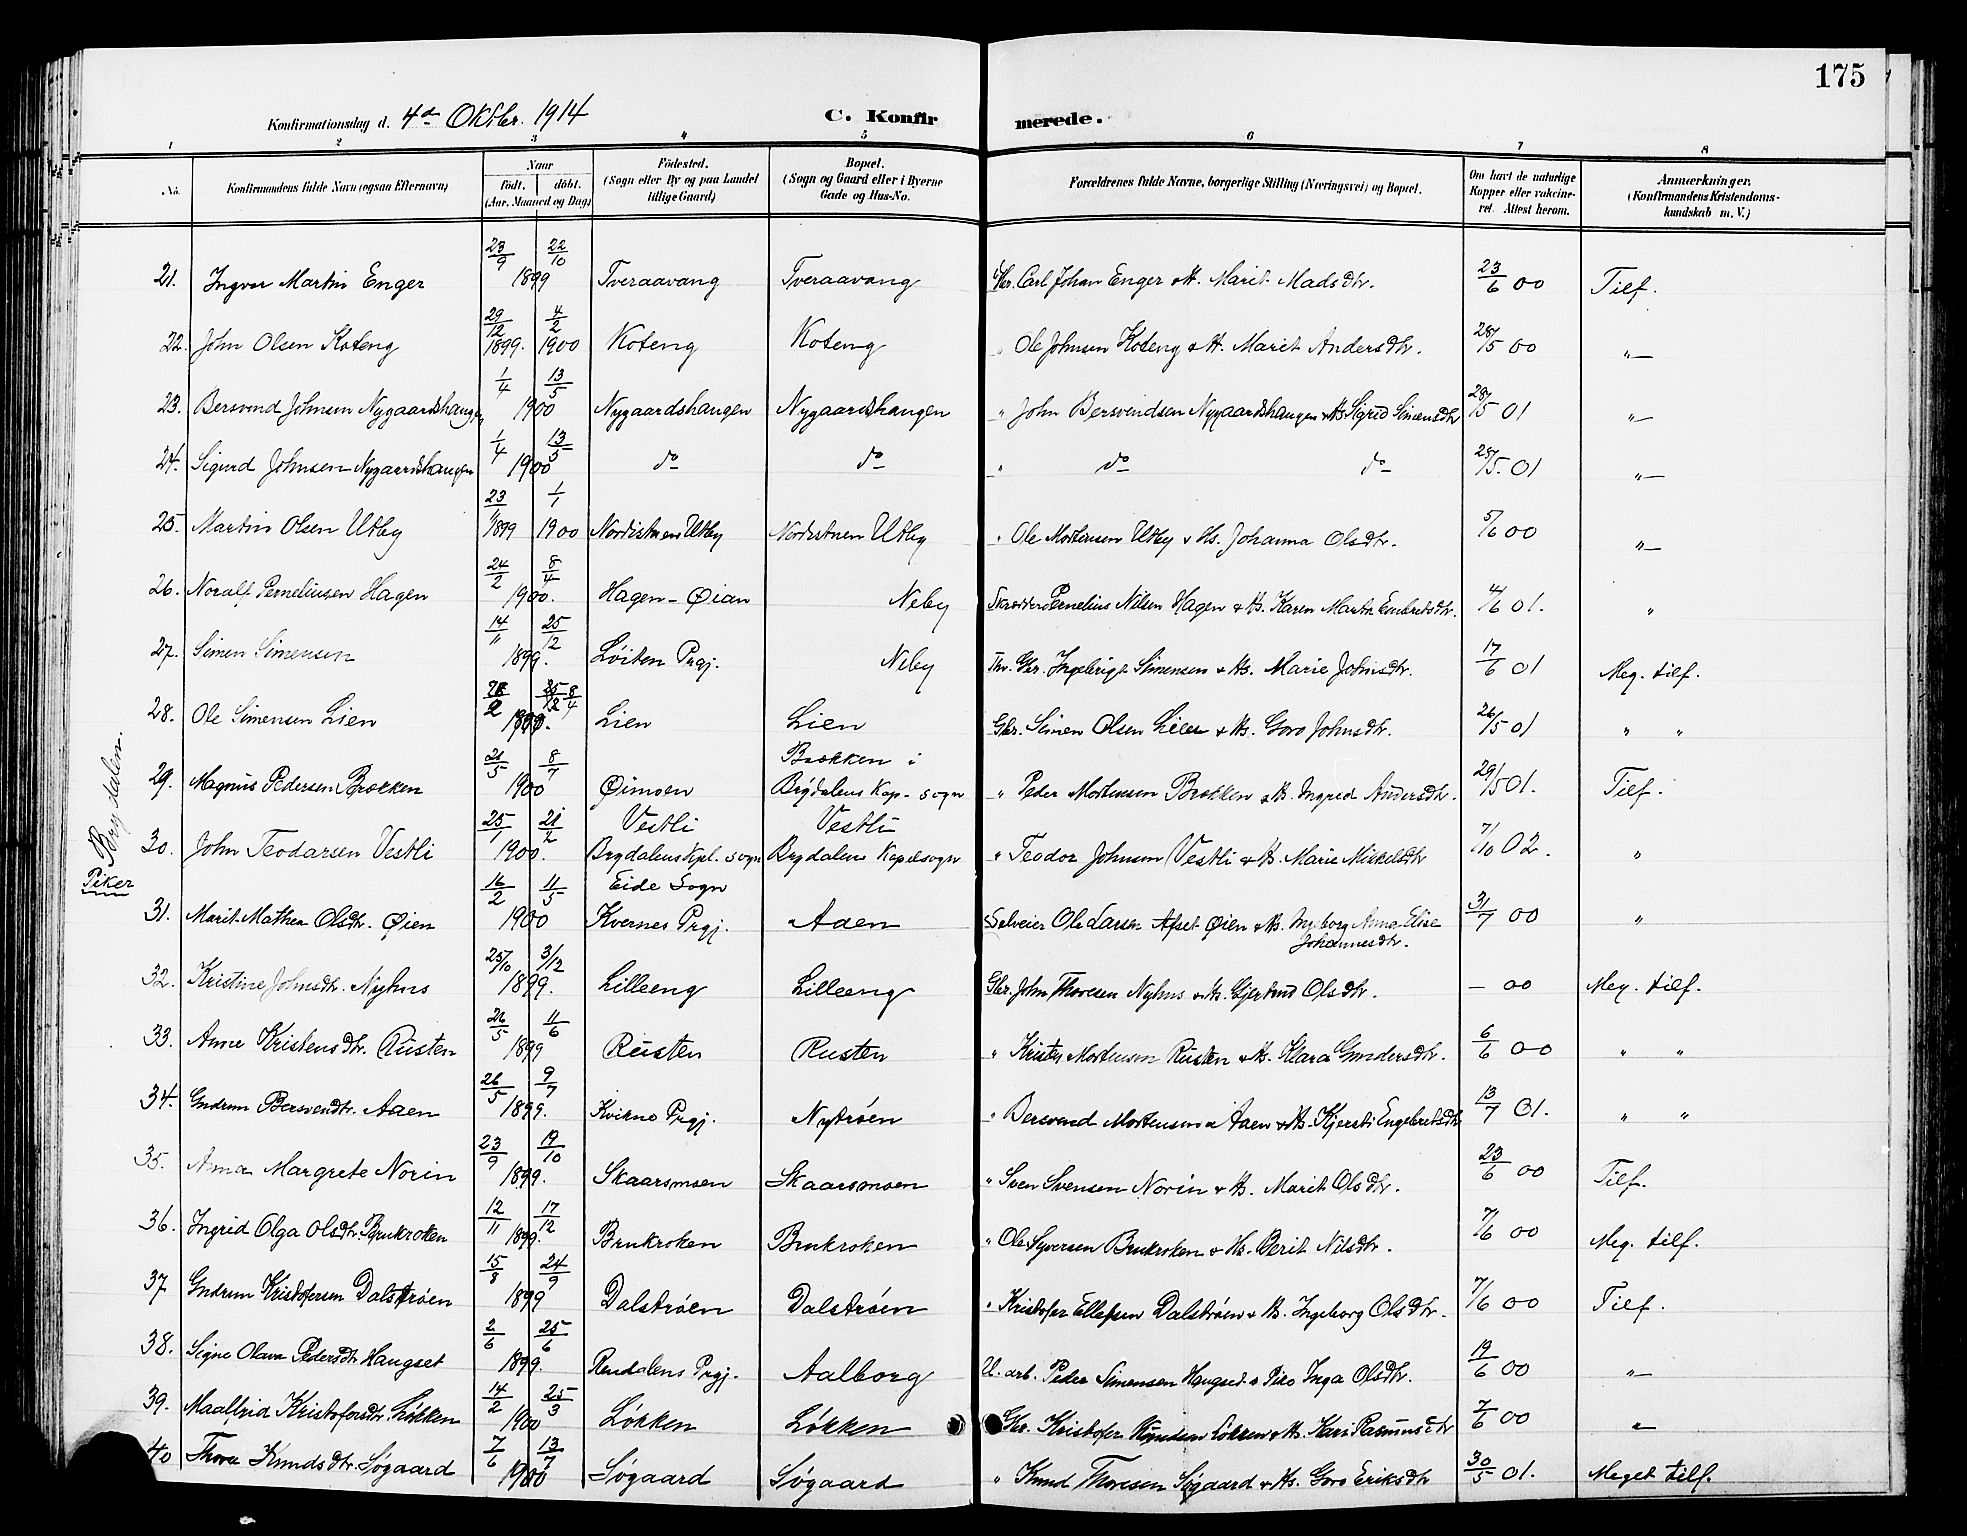 175
Konfirmationsdag d. 4de Oktbr. 1914 C. Konfirmerede.
1 2 3 4 5 6 7 8
No. Konfirmandens fulde Navn (ogsaa Efternavn) Naar födt. döbt. (Aar, Maaned og Dag) Födested. (Sogn eller By og paa Landet tillige Gaard) Bopæl. (Sogn og Gaard eller i Byerne Gade og Hus-No. Forældrenes fulde Navne, borgerlige Stilling (Næringsvei) og Bopæl. Om havt de naturlige Kopper eller vakcineret. Attest herom. Anmærkninger. (Konfirmandens Kristendomskundskab m. V.)
21. Ingvar Martin Enger 23/9 22/10 1899 Tveraavang Tveraavang Gbr. Carl Johan Enger & H. Marit Madsdtr. 23/6 00 Tilf.
22. John Olsen Koteng 29/12 1899. 4/2 1900 Koteng Koteng " Ole Johnsen Koteng & H. Marit Andersdtr. 28/5 00 "
23. Bersvend Johnsen Nygaardshaugen 1/4 13/5 1900 Nygaardshaugen Nygaardshaugen " John Bersvendsen Nygaardshaugen & Hs. Sigrid Simensdtr 28/5 01 "
24. Sigurd Johnsen Nygaardshaugen 1/4 13/5 1900 do do " do do 28/5 01 "
25. Martin Olsen Utby 23/11 1899 1/1 1900 Nordistuen Utby Nordistuen Utby " Ole Mortensen Utby & Hs. Johanna Olsdtr. 5/6 00 "
26. Noralf Perneliusen Hagen 24/2 8/4 1900. Hagen - Øian Neby Pernelius Nilsen Hagen & Hs. Karen Marta Embretsdtr. 4/6 01. "
27. Simen Simensen 14/11 25/12 1899. Löiten Prgj. Neby Fhv. Gbr. Ingebrigt Simensen & Hs. Marie Johnsdtr. 17/6 01 Meg. tilf.
28. Ole Simensen Lien 8/4 1900. Lien Lien Gbr. Simen Olsen Lien & Hs. Goro Johnsdtr. 26/5 01 " "
Brydalen.
29. Magnus Pedersen Brokken 21/5 8/7 1900 Øimoen Brokken i Brydalens Kap. sogn " Peder Mortensen Brokken & Hs. Ingrid Andersdtr. 29/5 01. Tilf.
30. John Teodorsen Vestli 25/1 21/2 1900. Vestli Brydalens Kpl. sogn Vestli Brydalens Kapelsogn " Teodor Johnsen Vestli & Hs. Marie Mikelsdtr 7/10 02. "
Piker
31. Marit Mathea Olsdtr. Øien 16/2 11/5 1900 Eide Sogn Kvernes Prgj. Aaen Selveier Ole Larsen Afset Øien & Hs. Ingeborg Anna Elise Johannesdtr. 31/7 00 "
32. Kristine Johnsdtr. Nyhus 25/10 3/12 1899. Lilleeng Lilleeng Gbr. John Thoresen Nyhus & Hs. Gjertrud Olsdtr. – 00 Meg. tilf.
33. Anne Kristensdtr. Rusten 26/5 11/6 1899 Rusten Rusten " Kristen Mortensen Rusten & Hs. Klara Gundersdtr. 6/6 00 " "
34. Gudrun Bersvendtr. Aaen 26/5 9/7 1899. Kvikne Prgj. Nytröen " Bersvend Mortensen Aaen & Hs. Kjersti Engebretsdtr 13/7 01. " "
35. Anna Margrete Norin 23/9 19/10 1899. Skaarsmoen Skaarsmoen " Sven Svensen Norin & Hs. Marit Olsdtr. 23/6 00 Tilf.
36. Ingrid Olga Olsdtr. Brukroken 12/11 17/12 1899. Brukroken Brukroken " Ole Syversen Brukroken & Hs. Berit Nilsdtr. 7/6 00 Meg. tilf.
37 Gudrun Kristofersen Dalströen 15/8 24/9 1899 Dalströen Dalströen " Kristofer Ellefsen Dalströen & Hs. Ingeborg Olsdtr. 7/6 00 Tilf.
38. Signe Olava Pedersdtr Haugset 2/6 25/6 1899. Rendalens Prgj. Aalborg U. arb. Peder Simensen Haugset & Inga Olsdtr. 19/6 00 "
39. Maalfrid Kristofersdtr. Lökken 14/2 25/3 1900 Lökken Lökken Gbr. Kristofer Lökken & Hs. Kari Rasmusdtr 7/6 00 "
40 Thora Knudsdtr. Søgaard 7/6 13/7 1900 Søgaard Søgaard " Knud Thoresen Søgaard & Hs. Goro Eriksdtr 30/5 01. Meget tilf.